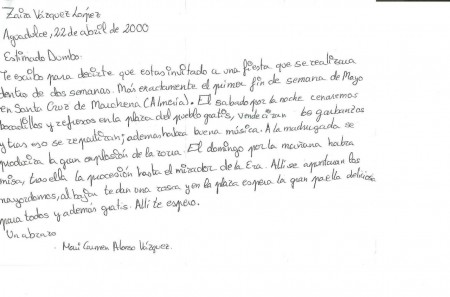 Zaira Vázquez López
Aguadulce, 22 de abril de 2000
Estimado Dumbo:
Te escibo para decirte que estas invitado a una fiesta que se realizara
dentro de dos semanas. Más exactamente el primer fin de semana de Mayo
en Santa Cruz de Marchena (Almería). El sabado por la noche cenaremos
bocadillos y refrescos en la plaza del pueblo gratis, vendeciran los garbanzos
y tras eso se repartiran; ademas habra buena música. A la madrugada se
producira la gran explosión de la zorra. El domingo por la mañana habra
misa, tras ella la procesión hasta el mirador de la Era. Alli se apuntaran los
mayordomos, al bajar te dan una rosca y en la plaza espera la gran paella deliciosa
para todos y ademas gratis. Alli te espero.
Un abrazo
Mari Carmen Alonso Vázquez.